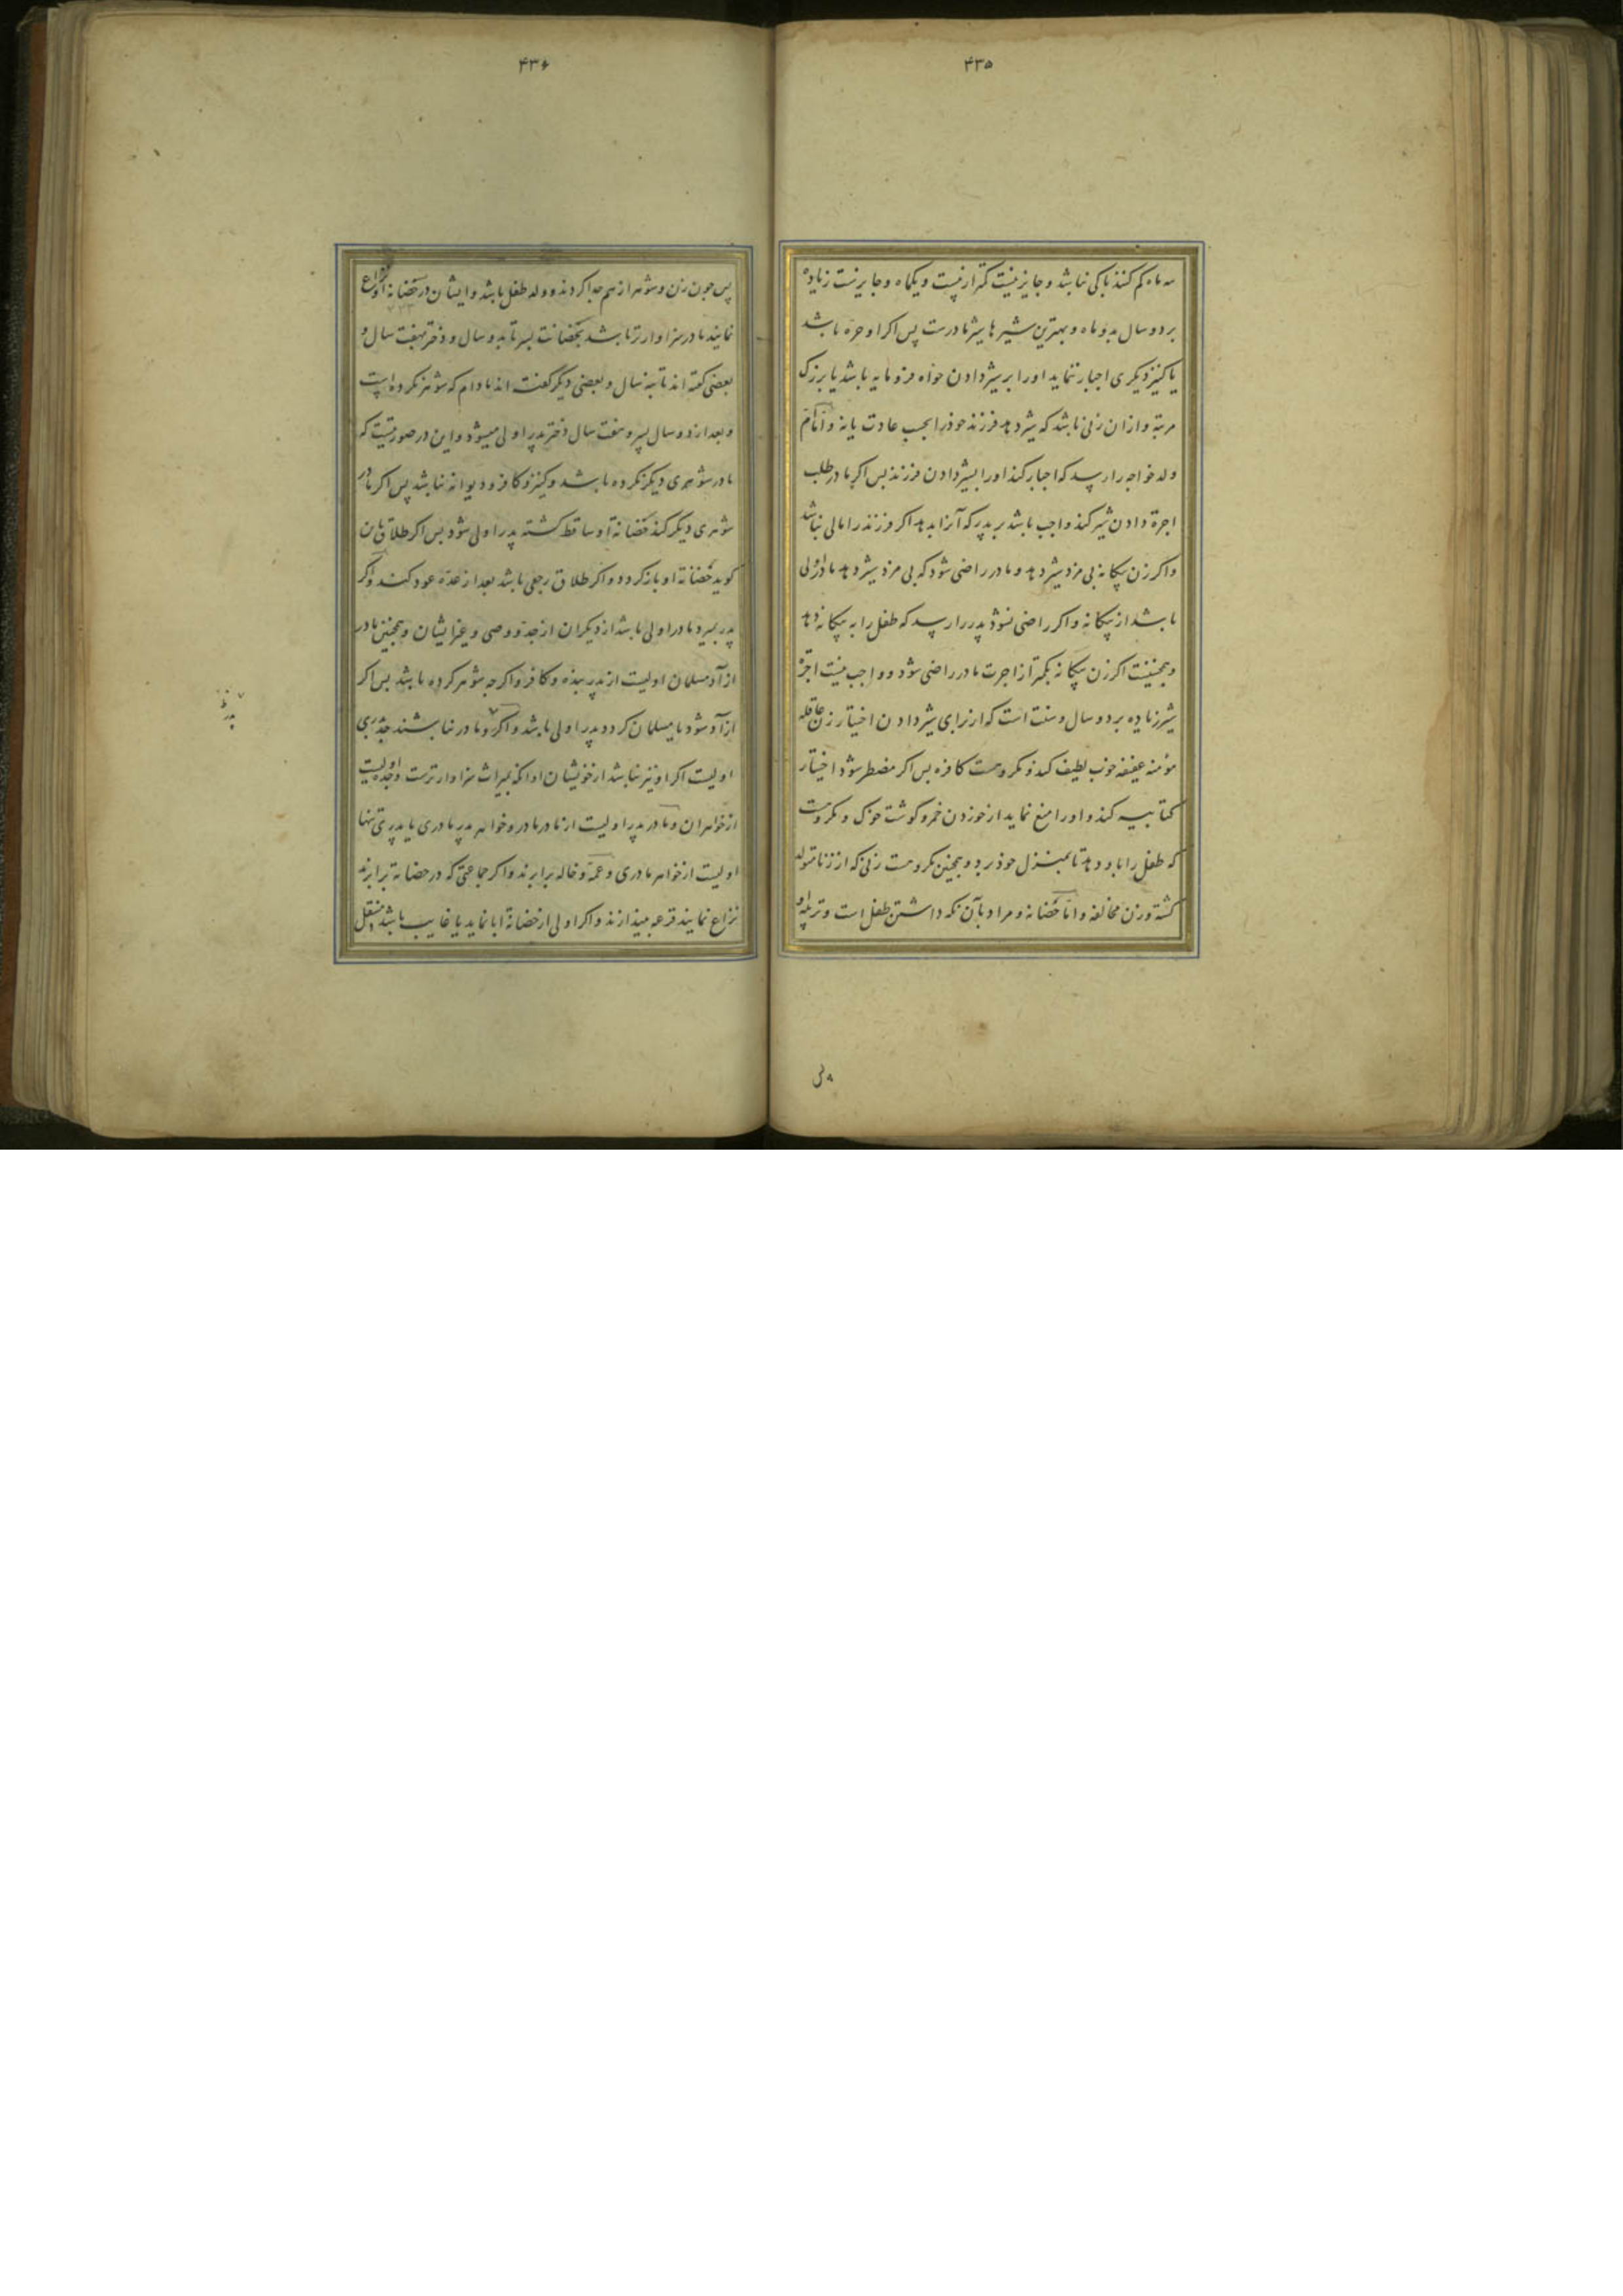 ۴۳۵
سه ماه کم کنند باکی نباشد و جایز نیست کمتر از بیست و یکماه و جایز نیست زیاده
بر دو سال بدو ماه و بهترین شیرها شیر مادرست پس اکر او حره باشد
یا کنیز دیکری اجبار ننماید او را بر شیر دادن خواه فرومایه باشد یا بزرک
مرتبه و ازان زنی باشد که شیر دهد فرزند خود را بحسب عادت یا نه و اما ام
ولد خواجه را رسد که اجبار کند او را بشیر دادن فرزند پس اکر مادر طلب
اجرة دادن شیر کند واجب باشد بر پدر که آنرا بدهد اکر فرزند را مالی نباشد
و اکر زن بیکانه بی مزد شیر دهد و مادر راضی شود که بی مزد شیر دهد مادر اولی
باشد از بیکانه و اکر راضی نشود پدر را رسد که طفل را به بیکانه دهد
و همچنینست اکر زن بیکانه بکمتر از اجرت مادر راضی شود و واجب نیست اجرة
شیر زیاده بر دو سال و سنت است که از برای شیر دادن اختیار زن عاقله
مؤمنه عفیفه خوب لطیف کند و مکروهست کافره پس اکر مضطر شود اختیار
کتابیه کند و او را منع نماید از خوردن خمر و کوشت خوک و مکروهست
که طفل را باو دهد تا بمنزل خود برد و همچنین مکروهست زنی که از زنا متولد
کشته و زن مخالفه و اما حضانه و مراد بآن نکه داشتن طفل است و تربیه او
۴۳۶
پس چون زن و شوهر از هم جدا کردند و ولد طفل باشد و ایشان در حضانه او نزاع
نمایند مادر سزاوارتر باشد بحضانت پسر تا بدو سال و دختر بهفت سال و
بعضی کفته اند تا بنه سال و بعضی دیکر کفته اند مادام که شوهر نکرده است
و بعد از دو سال پسر و هفت سال دختر پدر اولی میشود و این در صورتیست که
مادر شوهری دیکر نکرده باشد و کنیز و کافر و دیوانه نباشد پس اکر مادر
شوهری دیکر کند حضانة او ساقط کشته پدر اولی شود پس اکر طلاق باین
کوید حضانة او باز کردد و اکر طلاق رجعی باشد بعد از عده عود کند و اکر
پدر بمیرد مادر اولی باشد از دیکران از جد و وصی و غیر ایشان و همچنین مادر
ازآد مسلمان اولیست از پدر بنده و کافر و اکرچه شوهر کرده باشد پس اکر
ازآد شود یا مسلمان کردد پدر اولی باشد و اکر و مادر نباشند جد پدری
اولیست اکر او نیز نباشد از خویشان او انکه بمیراث سزاوارترست و جده اولیست
از خواهران و مادر پدر اولیست از مادر مادر و خواهر پدر مادری یا پدری تنها
اولیست از خواهر مادری و عمه و خاله برابرند و اکر جماعتی که در حضانة برابرند
نزاع نمایند قرعه میندازند و اکر اولی از حضانة ابا نماید یا غایب باشد منتقل
پدر